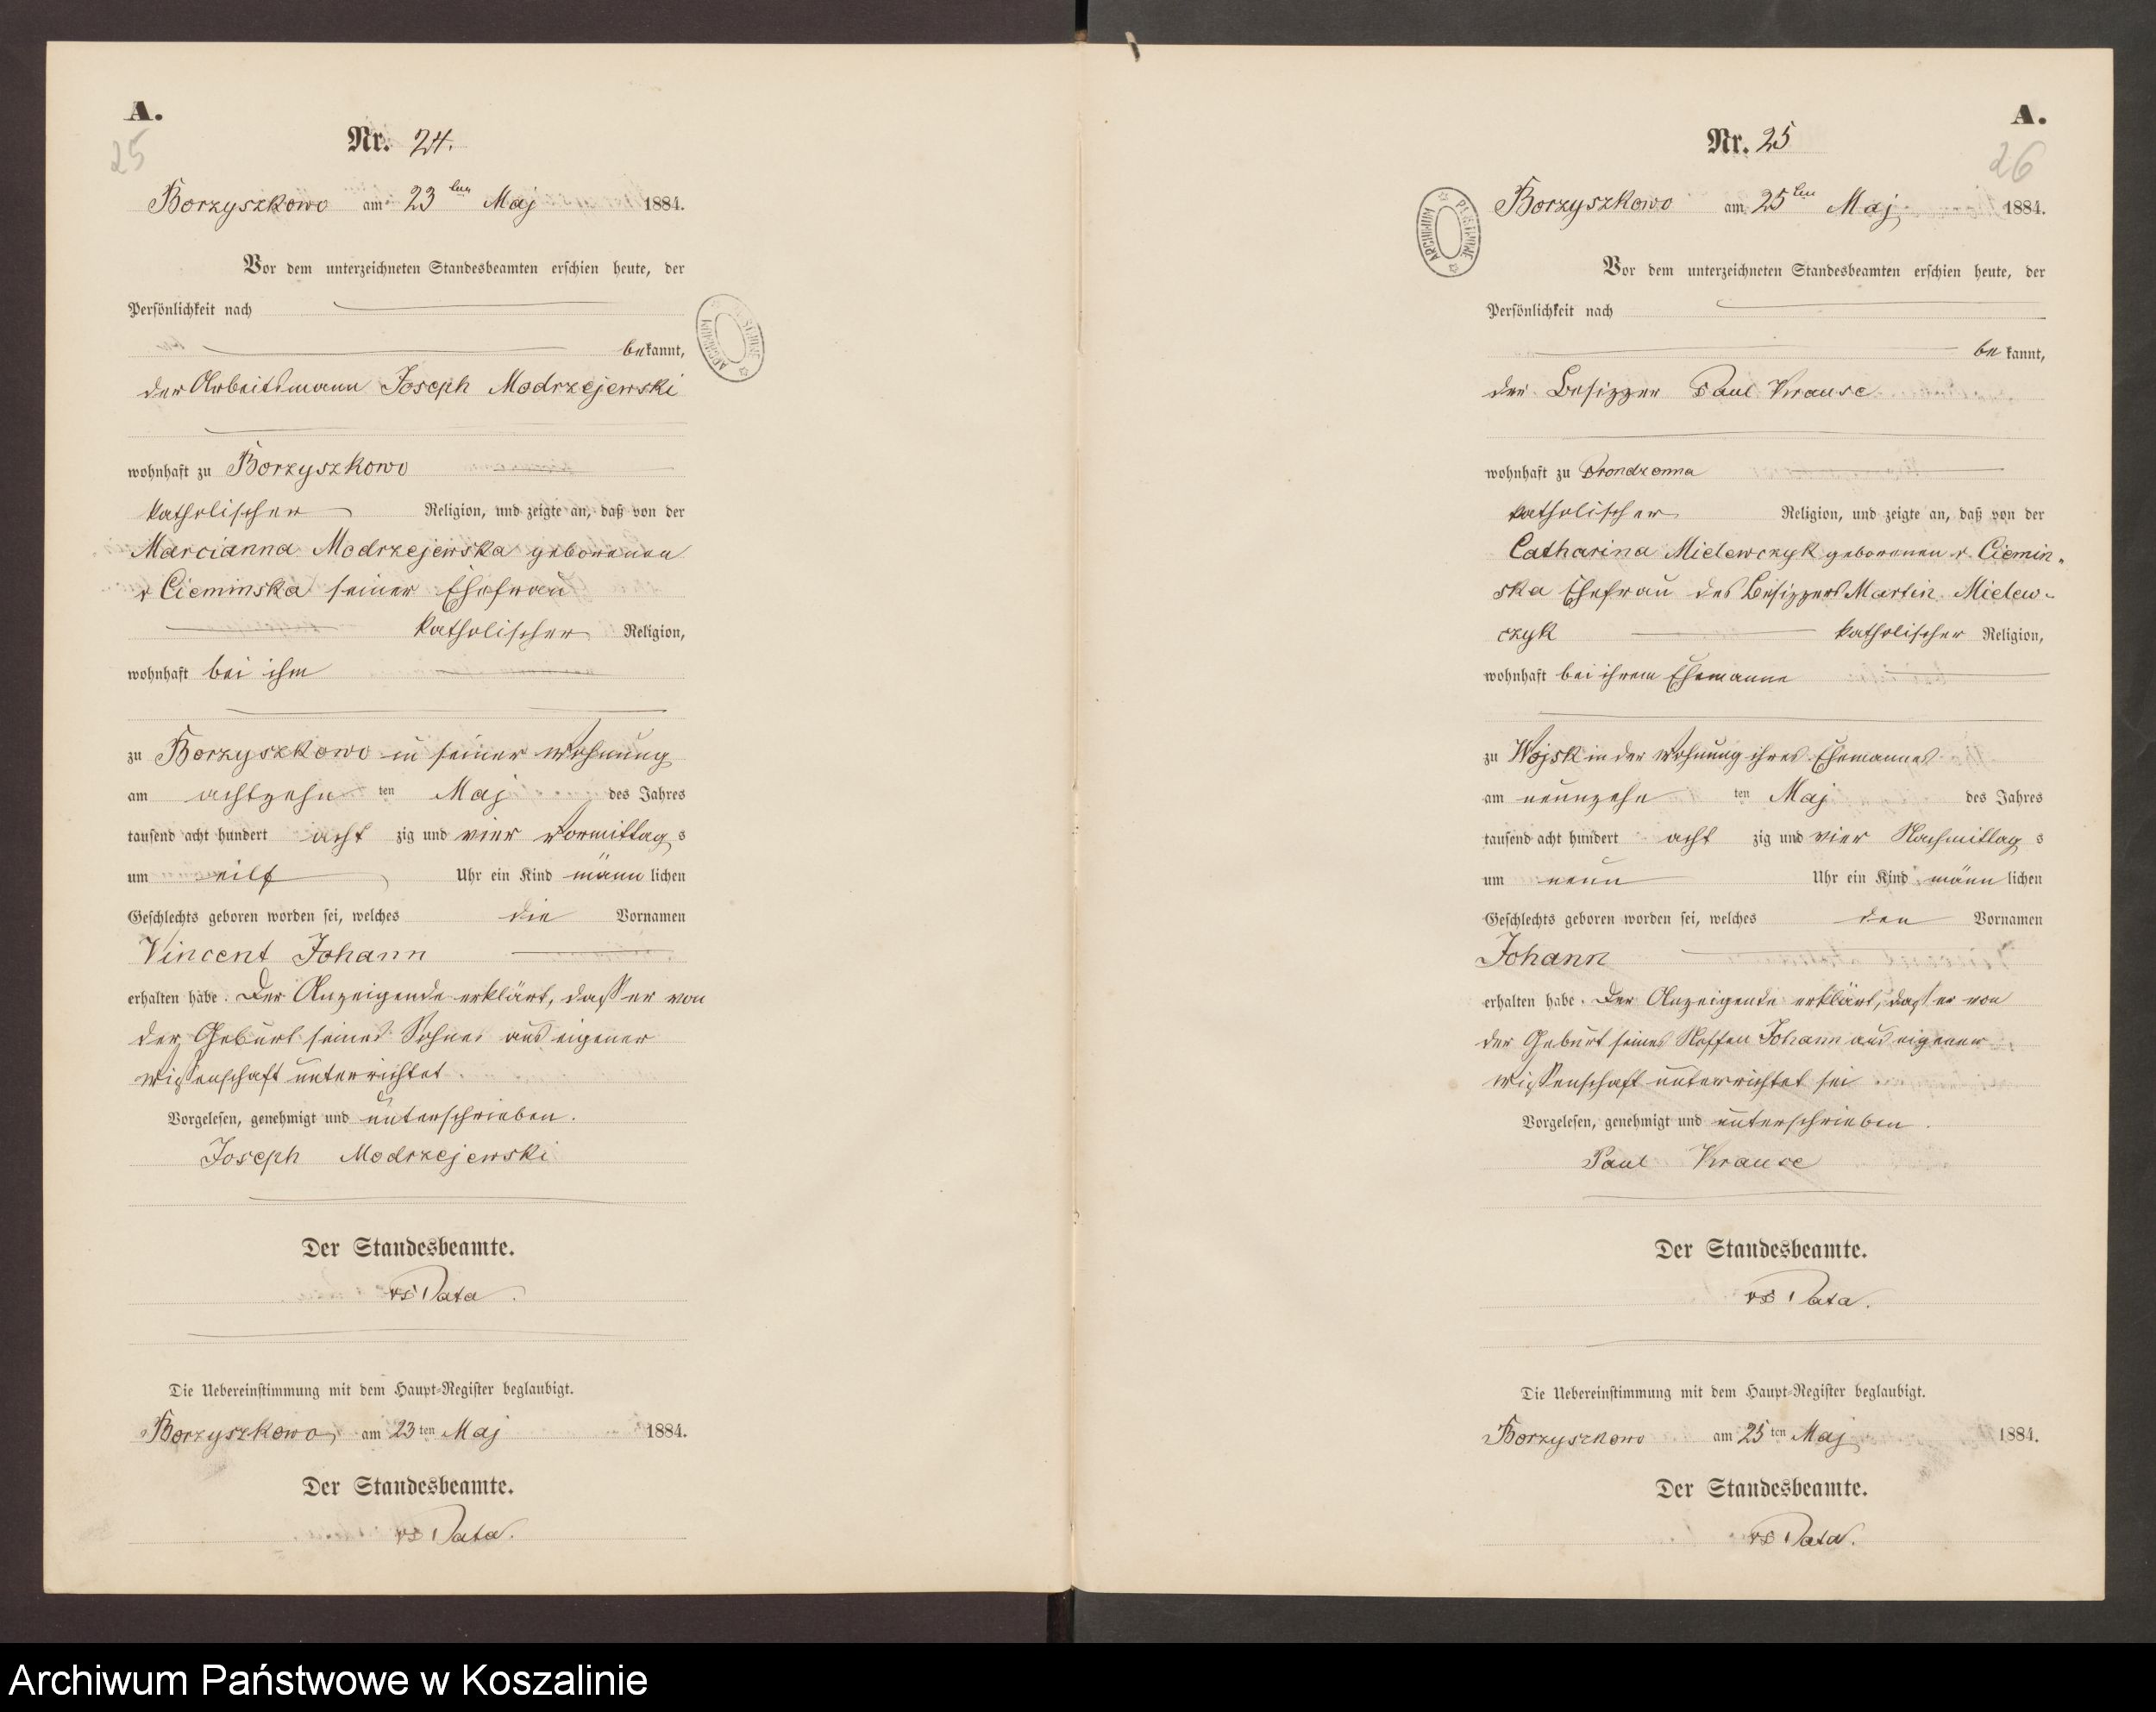 A.
25
Nr. 24.
Borzyszkowo am 23 ten Maj 1884.
Vor dem unterzeichneten Standesbeamten erschien heute, der
Persönlichkeit nach
bekannt,
der Arbeitsmann Joseph Modrzejewski
wohnhaft zu Borzyszkowo
katholischer Religion, und zeigte an, daß von der
Marcianna Modrzejewska geborenen
v Cieminska seiner Ehefrau
katholischer Religion,
wohnhaft bei ihm
zu Borzyszkowo in seiner Wohnung
am achtzehn ten Maj des Jahres
tausend acht hundert acht zig und vier Vormittag s
um eilf Uhr ein Kind männ lichen
Geschlechts geboren worden sei, welches die Vornamen
Vincent Johann
erhalten habe. Der Anzeigende erklärt, daß er von
der Geburt seines Sohnes aus eigener
Wißenschaft unterrichtet.
Vorgelesen, genehmigt und unterschrieben.
Joseph Modrzejewski
Der Standesbeamte.
vs Pata.
Die Uebereinstimmung mit dem Haupt-Register beglaubigt.
Borzyszkowo am 23 ten Maj 1884.
Der Standesbeamte.
vs Pata.
A.
26
Nr. 25
ARCHIWUM PAŃSTWOWE
Borzyszkowo am 25 ten Maj 1884.
Vor dem unterzeichneten Standesbeamten erschien heute, der
Persönlichkeit nach
be kannt,
der Besizzer Paul Krause
wohnhaft zu Prondzonna
katholischer Religion, und zeigte an, daß von der
Catharina Mielewczyk geborenen v. Ciemin-
ska Ehefrau des Besizzers Martin Mielew-
czyk katholischer Religion,
wohnhaft bei ihrem Ehemanne
zu Wojsk in der Wohnung ihres Ehemannes
am neunzehn ten Maj des Jahres
tausend acht hundert acht zig und vier Nachmittag s
um neun Uhr ein Kind männ lichen
Geschlechts geboren worden sei, welches den Vornamen
Johann
erhalten habe. Der Anzeigende erklärt, daß er von
der Geburt seines Neffen Johann aus eigener
Wißenschaft unterrichtet sei
Vorgelesen, genehmigt und unterschrieben.
Paul Krause
Der Standesbeamte.
vs Pata.
Die Uebereinstimmung mit dem Haupt-Register beglaubigt.
Borzyszkowo am 25 ten Maj 1884.
Der Standesbeamte.
vs Pata.
Archiwum Państwowe w Koszalinie